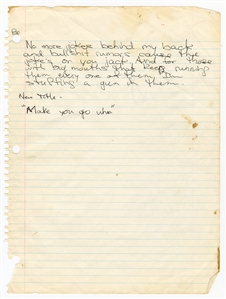 No more jokes behind my back
and bullshit rumors cause the
joke's on you jack And for those
with big mouths that keep running
them every one of them I'm
stuffing a gun in them.
New Title -
"Make you go who"